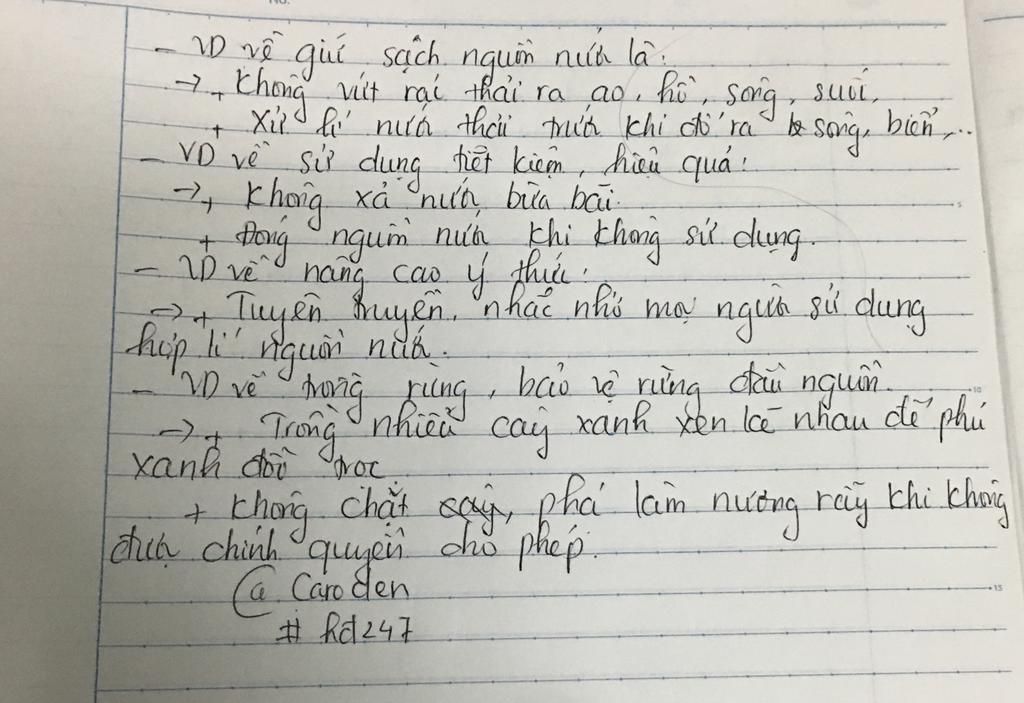 - VD về giữ sạch nguồn nước là:
→ + Không vứt rác thải ra ao, hồ, sông, suối,
+ Xử lí nước thải trước khi đổ ra sông, biển,...
- VD về sử dụng tiết kiệm, hiệu quả:
→ + Không xả nước bừa bãi.
+ Đóng nguồn nước khi không sử dụng.
- VD về nâng cao ý thức:
→ + Tuyên truyền, nhắc nhở mọi người sử dụng
hợp lí nguồn nước.
- VD về trồng rừng, bảo vệ rừng đầu nguồn.
→ + Trồng nhiều cây xanh xen kẽ nhau để phủ
xanh đồi trọc
+ Không chặt cây, phá làm nương rẫy khi không
được chính quyền cho phép.
@ Caro đen
# hd247